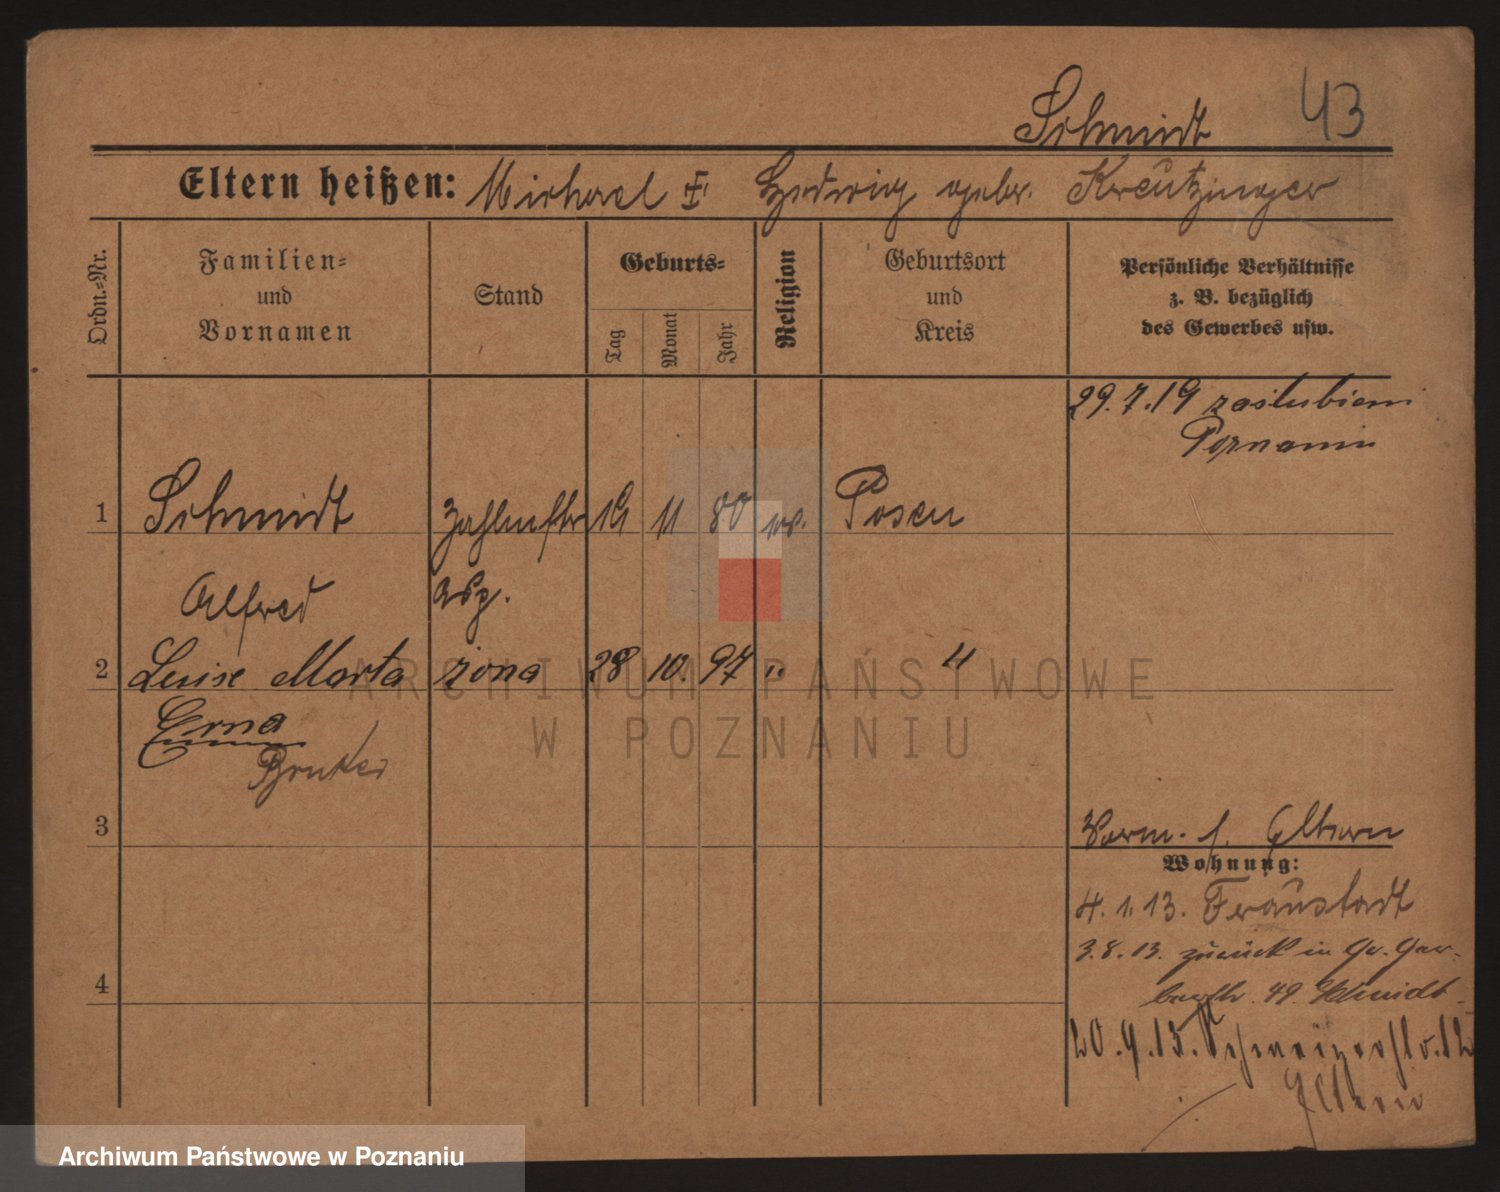 Schmidt 43
Eltern heißen: Michael † Hedwig gebr. Kreutzinger
Ordn.=Nr.
Familien=
und
Vornamen
Stand
Geburts=
Tag
Monat
Jahr
Religion
Geburtsort
und
Kreis
Persönliche Verhältnisse
z. B. bezüglich
des Gewerbes usw.
29.7.19 zaślubieni
Poznaniu
1 Schmidt Zahlmstr 19 11 80 ev. Posen
Alfred Asp.
2 Luise Marta żona 28 10. 97 " "
Erna
3
Vorm. s. Eltern
Wohnung:
4. 1. 13. Fraustadt
3. 8. 13. zurück in
49. Schmidt
4
20. 9. 13.
Eltern
ARCHIWUM PAŃSTWOWE
W POZNANIU
Archiwum Państwowe w Poznaniu